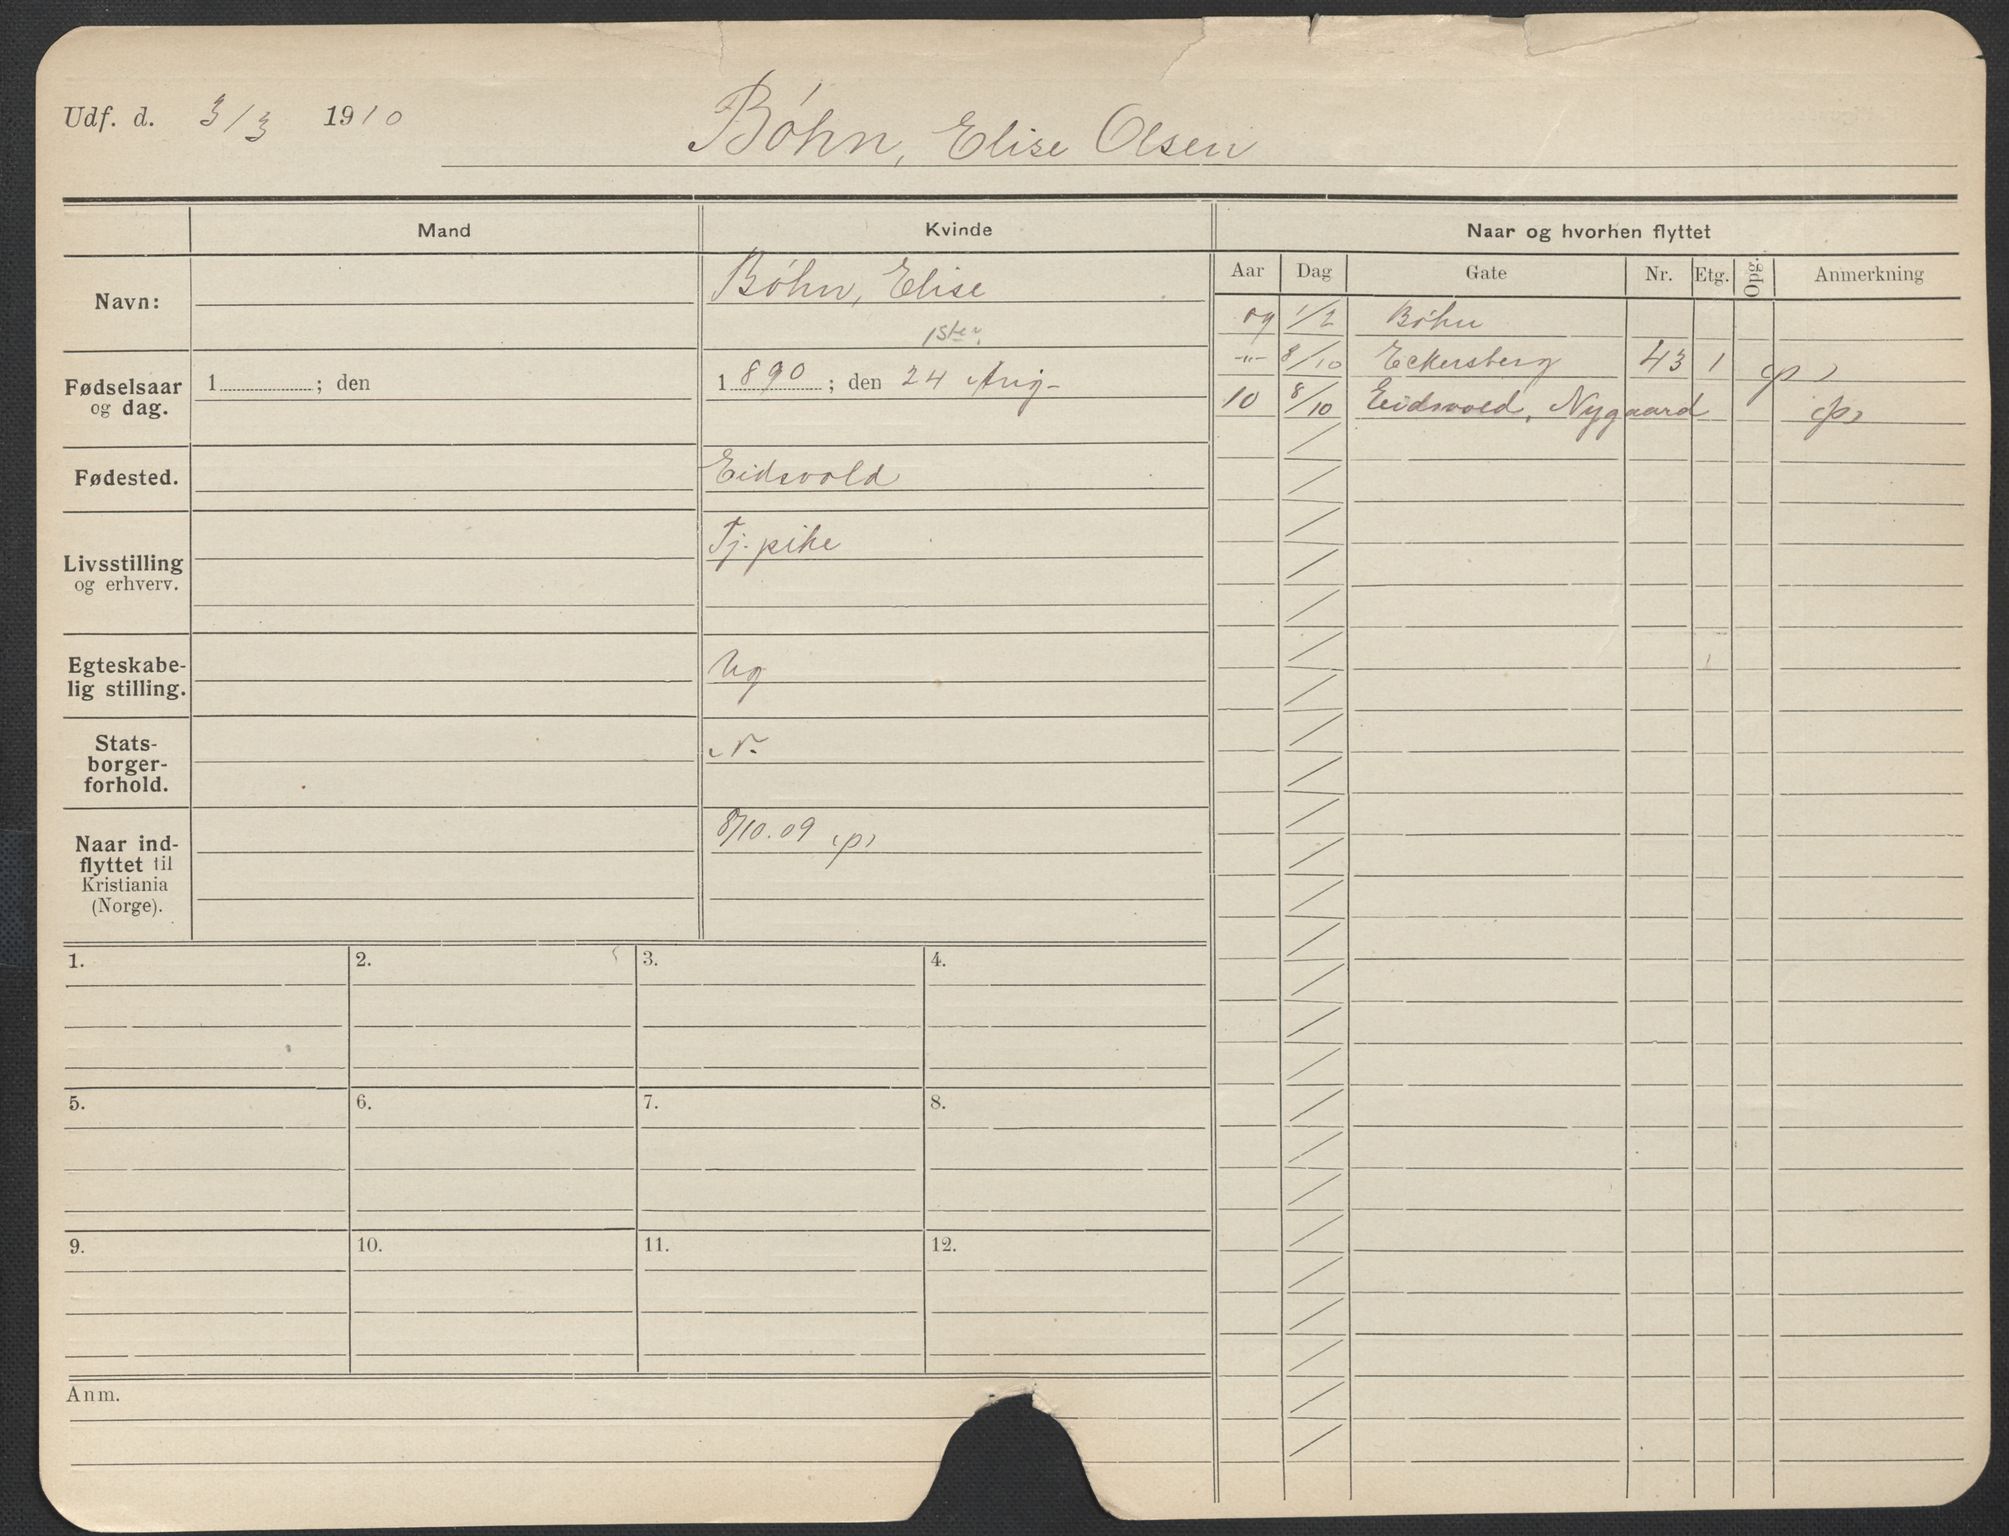 Udf. d. 3/3 1910 Bøhn, Elise Olsen
Mand Kvinde Naar og hvorhen flyttet
Aar Dag Gate Nr. Etg. Opg. Anmerkning
Navn: Bøhn, Elise
09 1/2 Bøhn
-"- 8/10 Eckersberg 43 1 (p)
10 8/10 Eidsvold, Nygaard (p)
Fødselsaar
og dag.
1 ; den
1 890 ; den 24 Aug-
Fødested. Eidsvold
Livsstilling
og erhverv.
Tj. pike
Egteskabe-
lig stilling.
Ug
Stats-
borger-
forhold.
N.
Naar ind-
flyttet til
Kristiania
(Norge).
8/10.09 (p)
1. 2. 3. 4.
5. 6. 7. 8.
9. 10. 11. 12.
Anm.